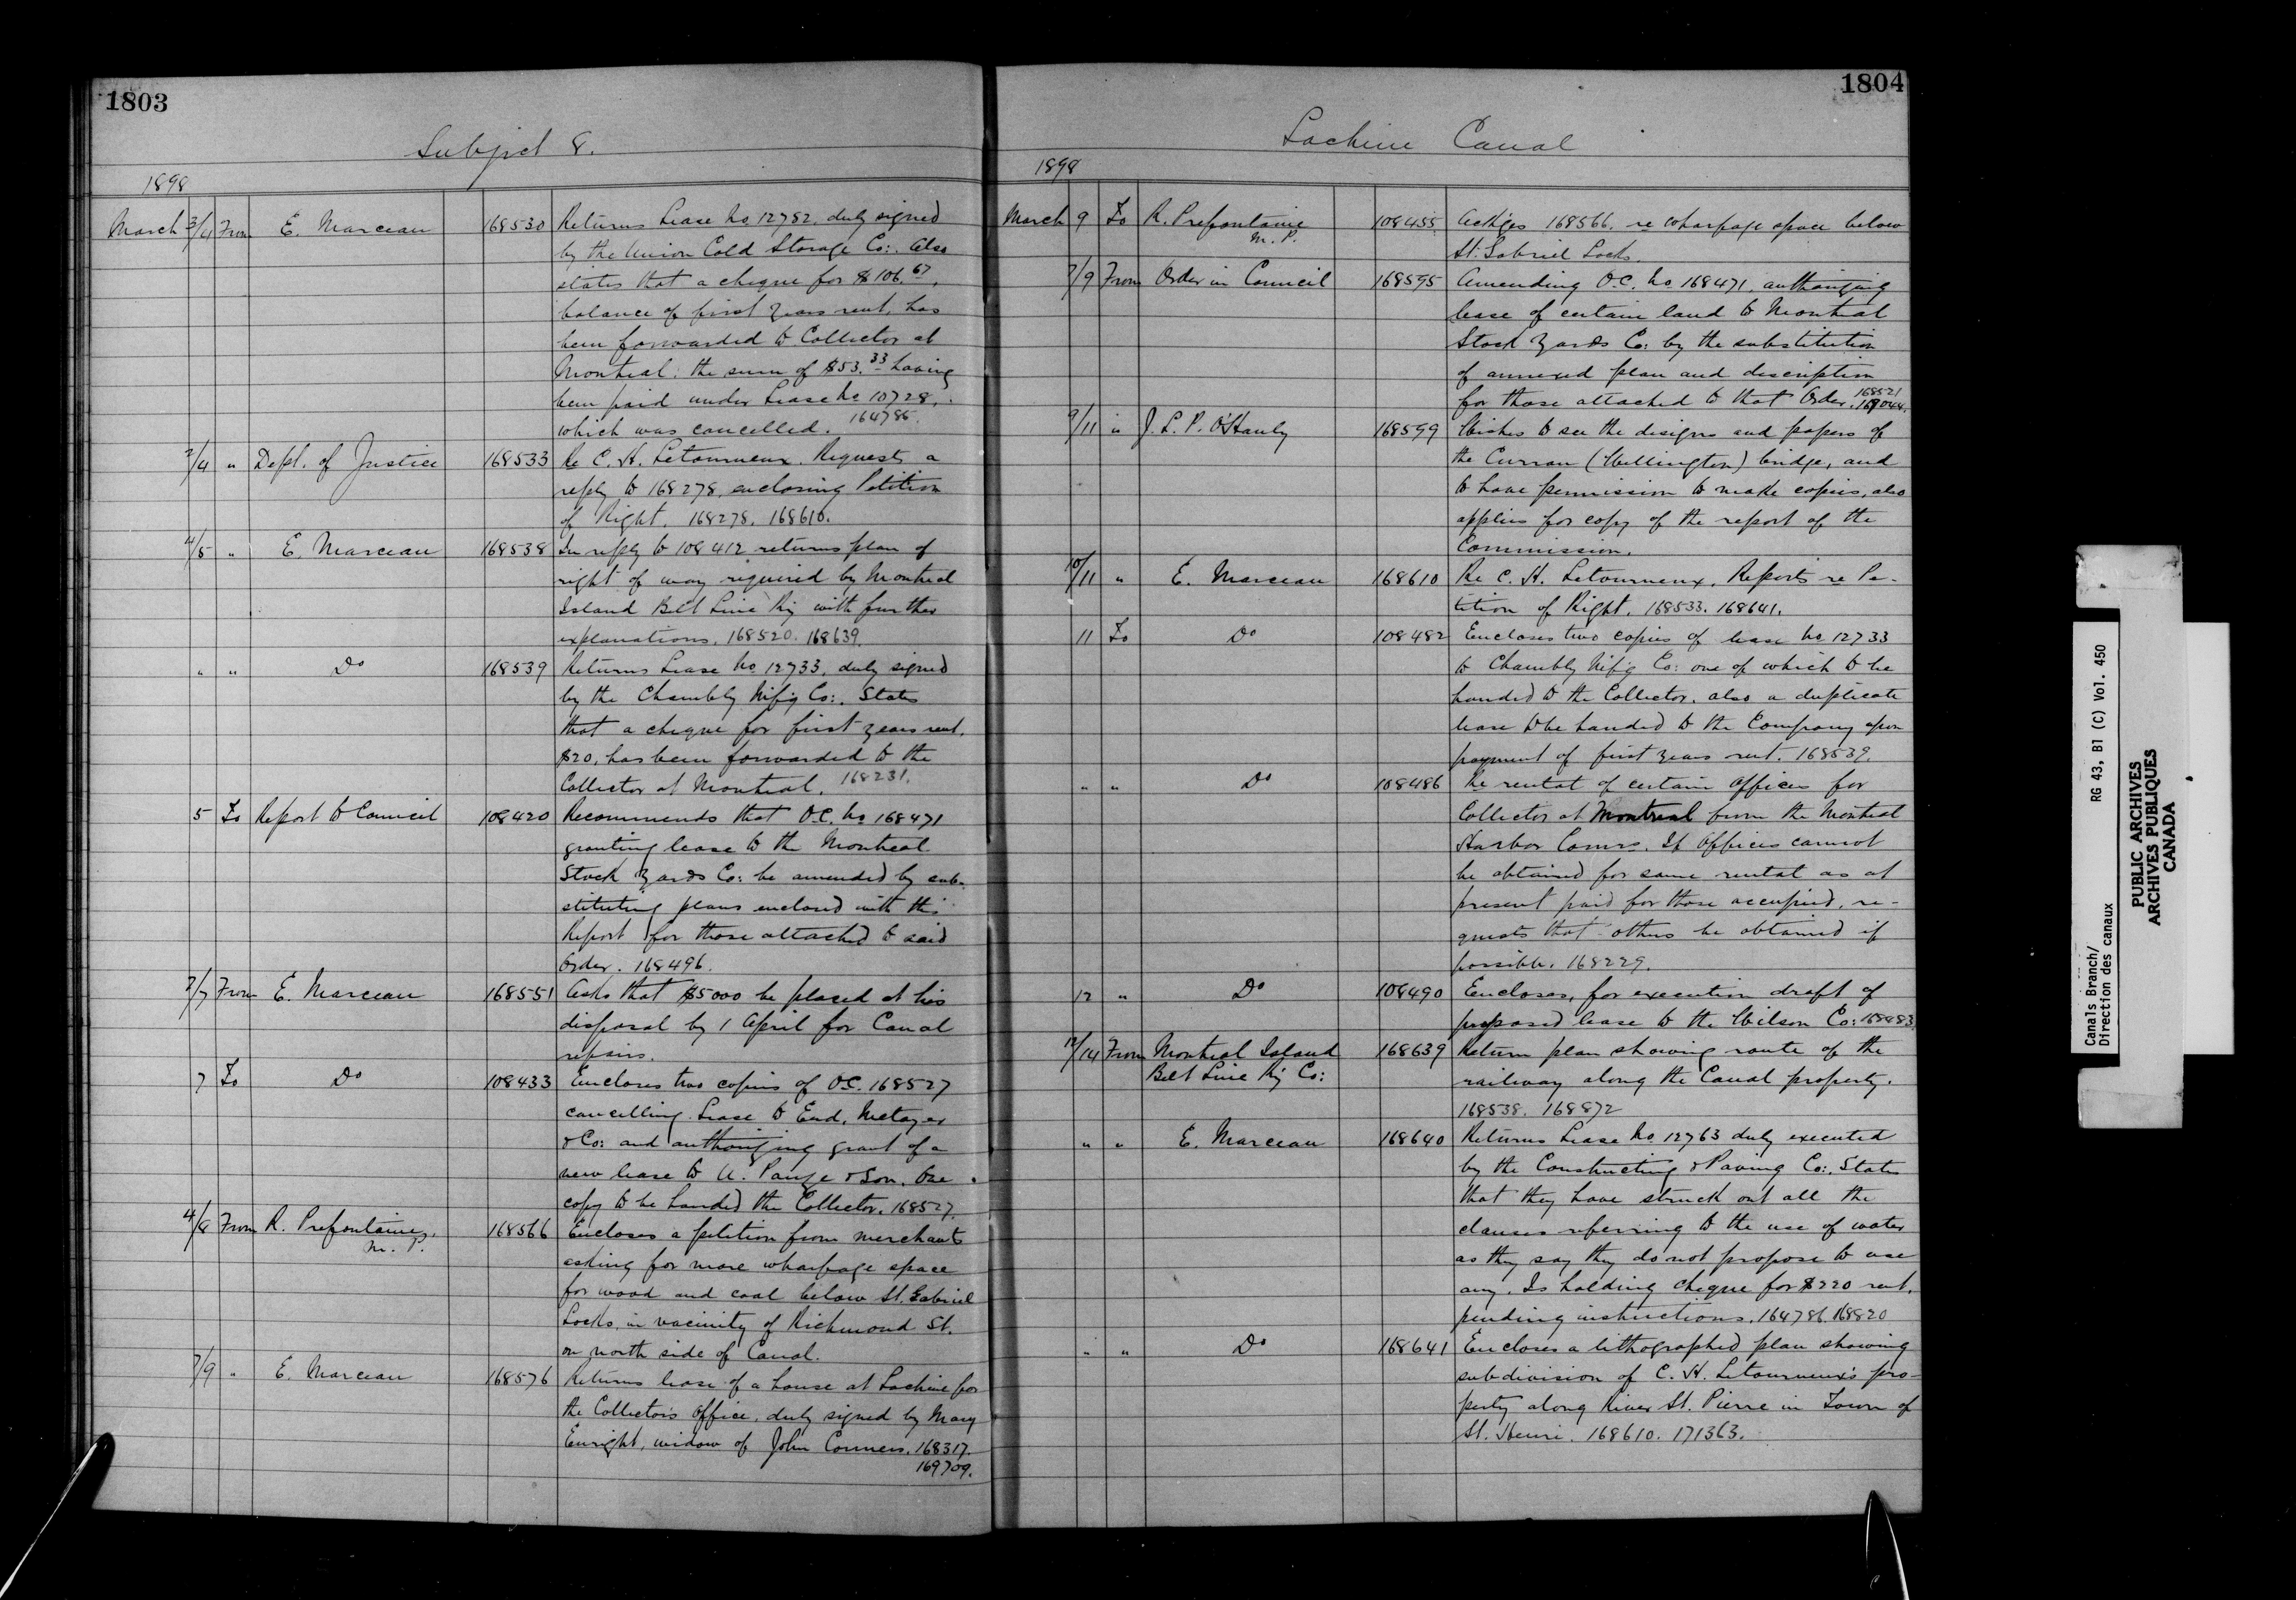 1803
Subject 8.
1898
March 3/4 From E. Marceau 168530 Returns Lease No 12752, duly signed
by the Union Cold Storage Co:. Also
states that a cheque for $106.67,
balance of first years rent, has
been forwarded to Collector at
Montreal: the sum of $53.33 having
been paid under Lease No 10728,
which was cancelled. 164785.
2/4 " Dept. of Justice 168533 Re C. H. Letourneux. Requests a
reply to 168278, enclosing Petition
of Right. 168278. 168610.
4/5 " E. Marceau 168538 In reply to 108412 returns plan of
right of way required by Montreal
Island Belt Line Ry with further
explanations. 168520. 168639.
" " Do 168539 Returns Lease No 12733, duly signed
by the Chambly M'f'g Co:. States
that a cheque for first years rent,
$20, has been forwarded to the
Collector at Montreal. 168231.
5 To Report to Council 108420 Recommends that O.C. No 168471
granting lease to the Montreal
Stock Yards Co: be amended by sub-
stituting plans enclosed with this
Report for those attached to said
Order. 168496.
7/7 From E. Marceau 168551 Asks that $5000 be placed at his
disposal by 1 April for Canal
repairs.
7 To Do 108433 Encloses two copies of O.C. 168527
cancelling Lease to Eud. Metayer
& Co: and authorizing grant of a
new lease to U. Pauze & Son. One
copy to be handed the Collector. 168527.
4/8 From R. Prefontaine, 168566 Encloses a petition from merchants
M. P.
asking for more wharfage space
for wood and coal below St. Gabriel
Locks, in vacinity of Richmond St.
on north side of Canal.
7/9 " E. Marceau 168576 Returns lease of a house at Lachine for
the Collectors office, duly signed by Mary
Enright, widow of John Conners. 168317.
169709.
1804
Lachine Canal
1898
March 9 To R. Prefontaine 108455 Ackges 168566. re wharfage space below
M. P.
St. Gabriel Locks.
7/9 From Order in Council 168595 Amending O.C. No 168471, authorizing
lease of certain land to Montreal
Stock Yards Co: by the substitution
of annexed plan and description
for those attached to that Order. 168521
169044.
9/11 " J. L. P. O'Hanly 168599 Wishes to see the designs and papers of
the Curran (Wellington) bridge, and
to have permission to make copies, also
applies for copy of the report of the
Commission.
10/11 " E. Marceau 168610 Re C. H. Letourneux. Reports re Pe-
tition of Right. 168533. 168641.
11 To Do 108482 Encloses two copies of lease No 12733
to Chambly M'f'g Co: one of which to be
handed to the Collector, also a duplicate
lease to be handed to the Company upon
payment of first years rent. 168539.
" " Do 108486 Re rental of certain offices for
Collector at Montreal from the Montreal
Harbor Comrs. If Offices cannot
be obtained for same rental as at
present paid for those occupied, re-
quests that others be obtained if
possible. 168229.
12 " Do 108490 Encloses, for execution draft of
proposed lease to the Wilson Co: 168483.
12/14 From Montreal Island 168639 Return plan showing route of the
Belt Line Ry Co: railway along the Canal property.
168538. 168872
" " E. Marceau 168640 Returns Lease No 12763 duly executed
by the Constructing & Paving Co:. States
that they have struck out all the
clauses referring to the use of water
as they say they do not propose to use
any. Is holding cheque for $220 rent,
pending instructions. 164786. 168820
" " Do 168641 Encloses a lithographed plan showing
subdivision of C. H. Letourneux's pro-
perty along River St. Pierre in Town of
St. Henri. 168610. 171363.
Canals Branch/ RG 43, B1 (C) Vol. 450
Direction des canaux
PUBLIC ARCHIVES
ARCHIVES PUBLIQUES
CANADA